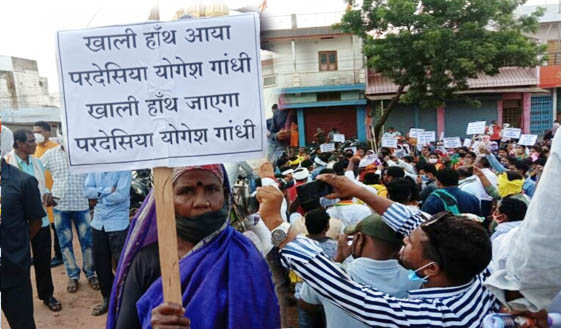 खाली हाँथ आया
परदेसिया योगेश गांधी
खाली हाँथ जाएगा
परदेसिया योगेश गांधी